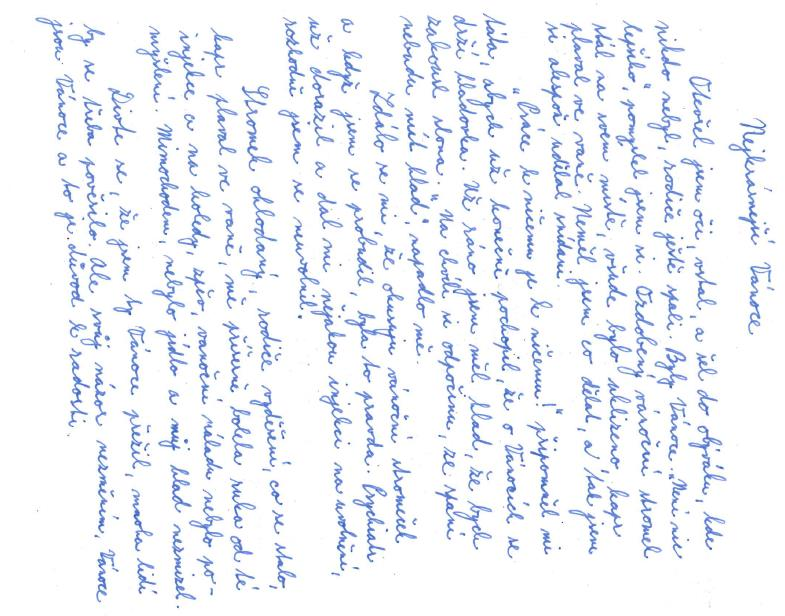 Nejkrásnější Vánoce
Otevřel jsem oči, vstal, a šel do obýváku, kde
nikdo nebyl, rodiče ještě spali. Byly Vánoce. "Není nic
lepšího," pomyslel jsem si. Ozdobený vánoční stromek
stál na svém místě, všude bylo sklizeno, kapr
plaval ve vaně. Neměl jsem co dělat, a tak jsem
si alespoň udělal snídani.
"Práce k ničemu je k ničemu!" připomněl mi
táta, abych už konečně pochopil, že o Vánocích se
drží hladovka. Už ráno jsem měl hlad, že bych
zakousl slona. "Na chvíli si odpočinu, ze spaní
nebudu mít hlad", napadlo mě.
Zdálo se mi, že okusuji vánoční stromeček
a když jsem se probudil, byla to pravda. Psychiatr
už dorazil a dal mi nějakou injekci na uvolnění,
rozhodně jsem se neuvolnil.
Stromek ohlodaný, rodiče vyděšení, co se stalo,
kapr plaval ve vaně, mě příšerně bolela ruka od té
injekce a na koledy, zpěv, vánoční náladu nebylo po-
myšlení. Mimochodem, nebylo jídlo a můj hlad nezmizel.
Divte se, že jsem ty Vánoce přežil, mnoha lidí
by se třeba pověsilo. Ale svůj názor nezměním, Vánoce
jsou Vánoce a to je důvod k radosti.